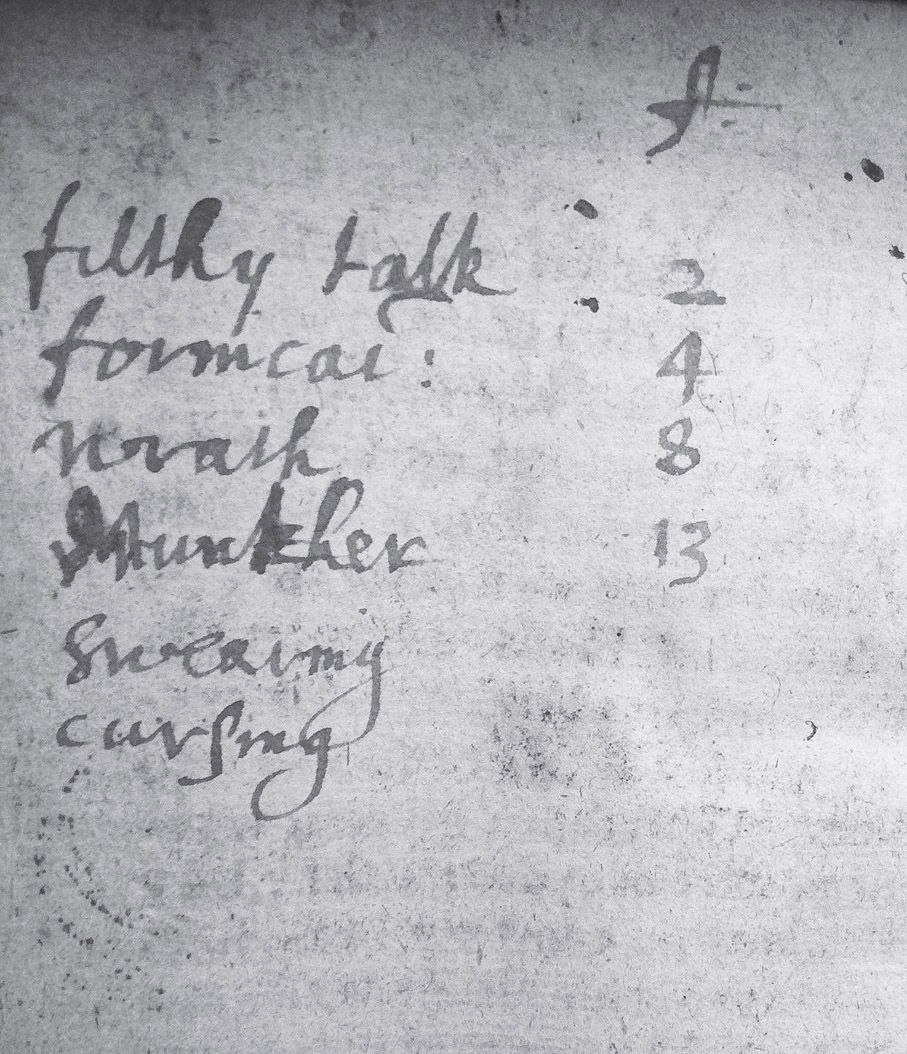 filthy talk 2
fornicat: 4
wrath 8
13
swearing
curſing